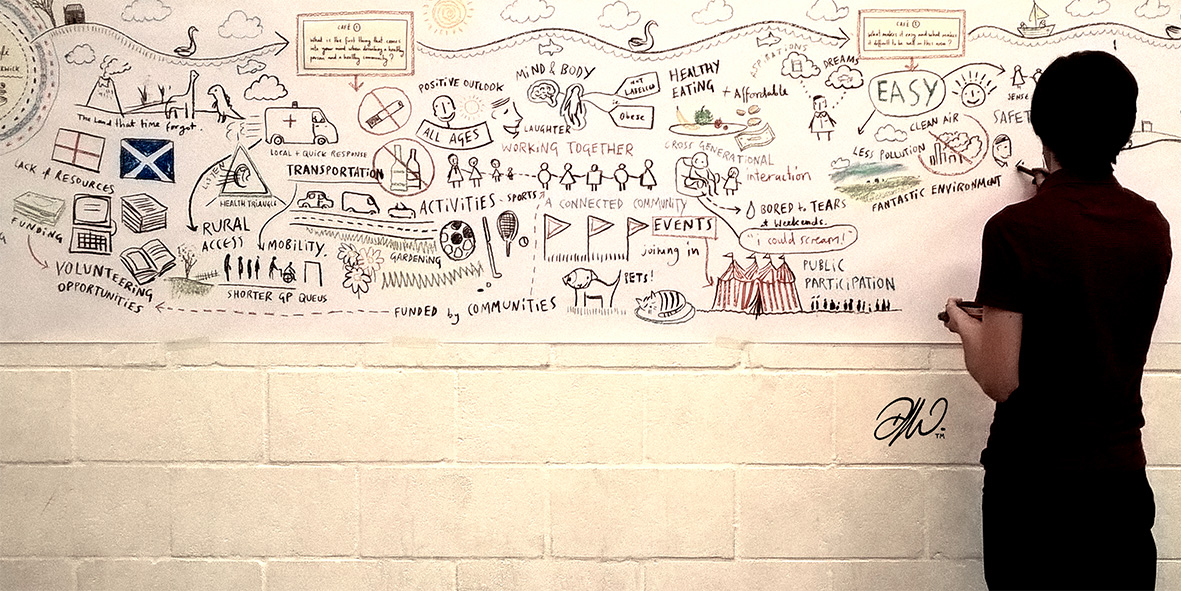 WICK
CAFÉ ①
What is the first thing that comes
into your mind when describing a healthy
person and a healthy community?
CAFÉ ①
What makes it easy and what makes
it difficult to be well in this area?
The Land that time forgot.
LACK of RESOURCES
FUNDING
VOLUNTEERING
OPPORTUNITIES
LISTEN
HEALTH TRIANGLE
LOCAL + QUICK RESPONSE
TRANSPORTATION
RURAL
ACCESS
MOBILITY.
SHORTER GP QUEUS
GARDENING
POSITIVE OUTLOOK
ALL AGES
LAUGHTER
MIND & BODY
NOT
LABELLED
ie.
Obese
HEALTHY
EATING + Affordable
WORKING TOGETHER
ACTIVITIES - SPORTS
A CONNECTED COMMUNITY
CROSS GENERATIONAL
interaction
ASPIRATIONS
DREAMS
BORED to TEARS
at weekends.
"i could scream!"
EVENTS
joining in
PETS!
PUBLIC
PARTICIPATION
FUNDED by COMMUNITIES
EASY
CLEAN AIR
LESS POLLUTION
FANTASTIC ENVIRONMENT
SENSE
SAFET
TM